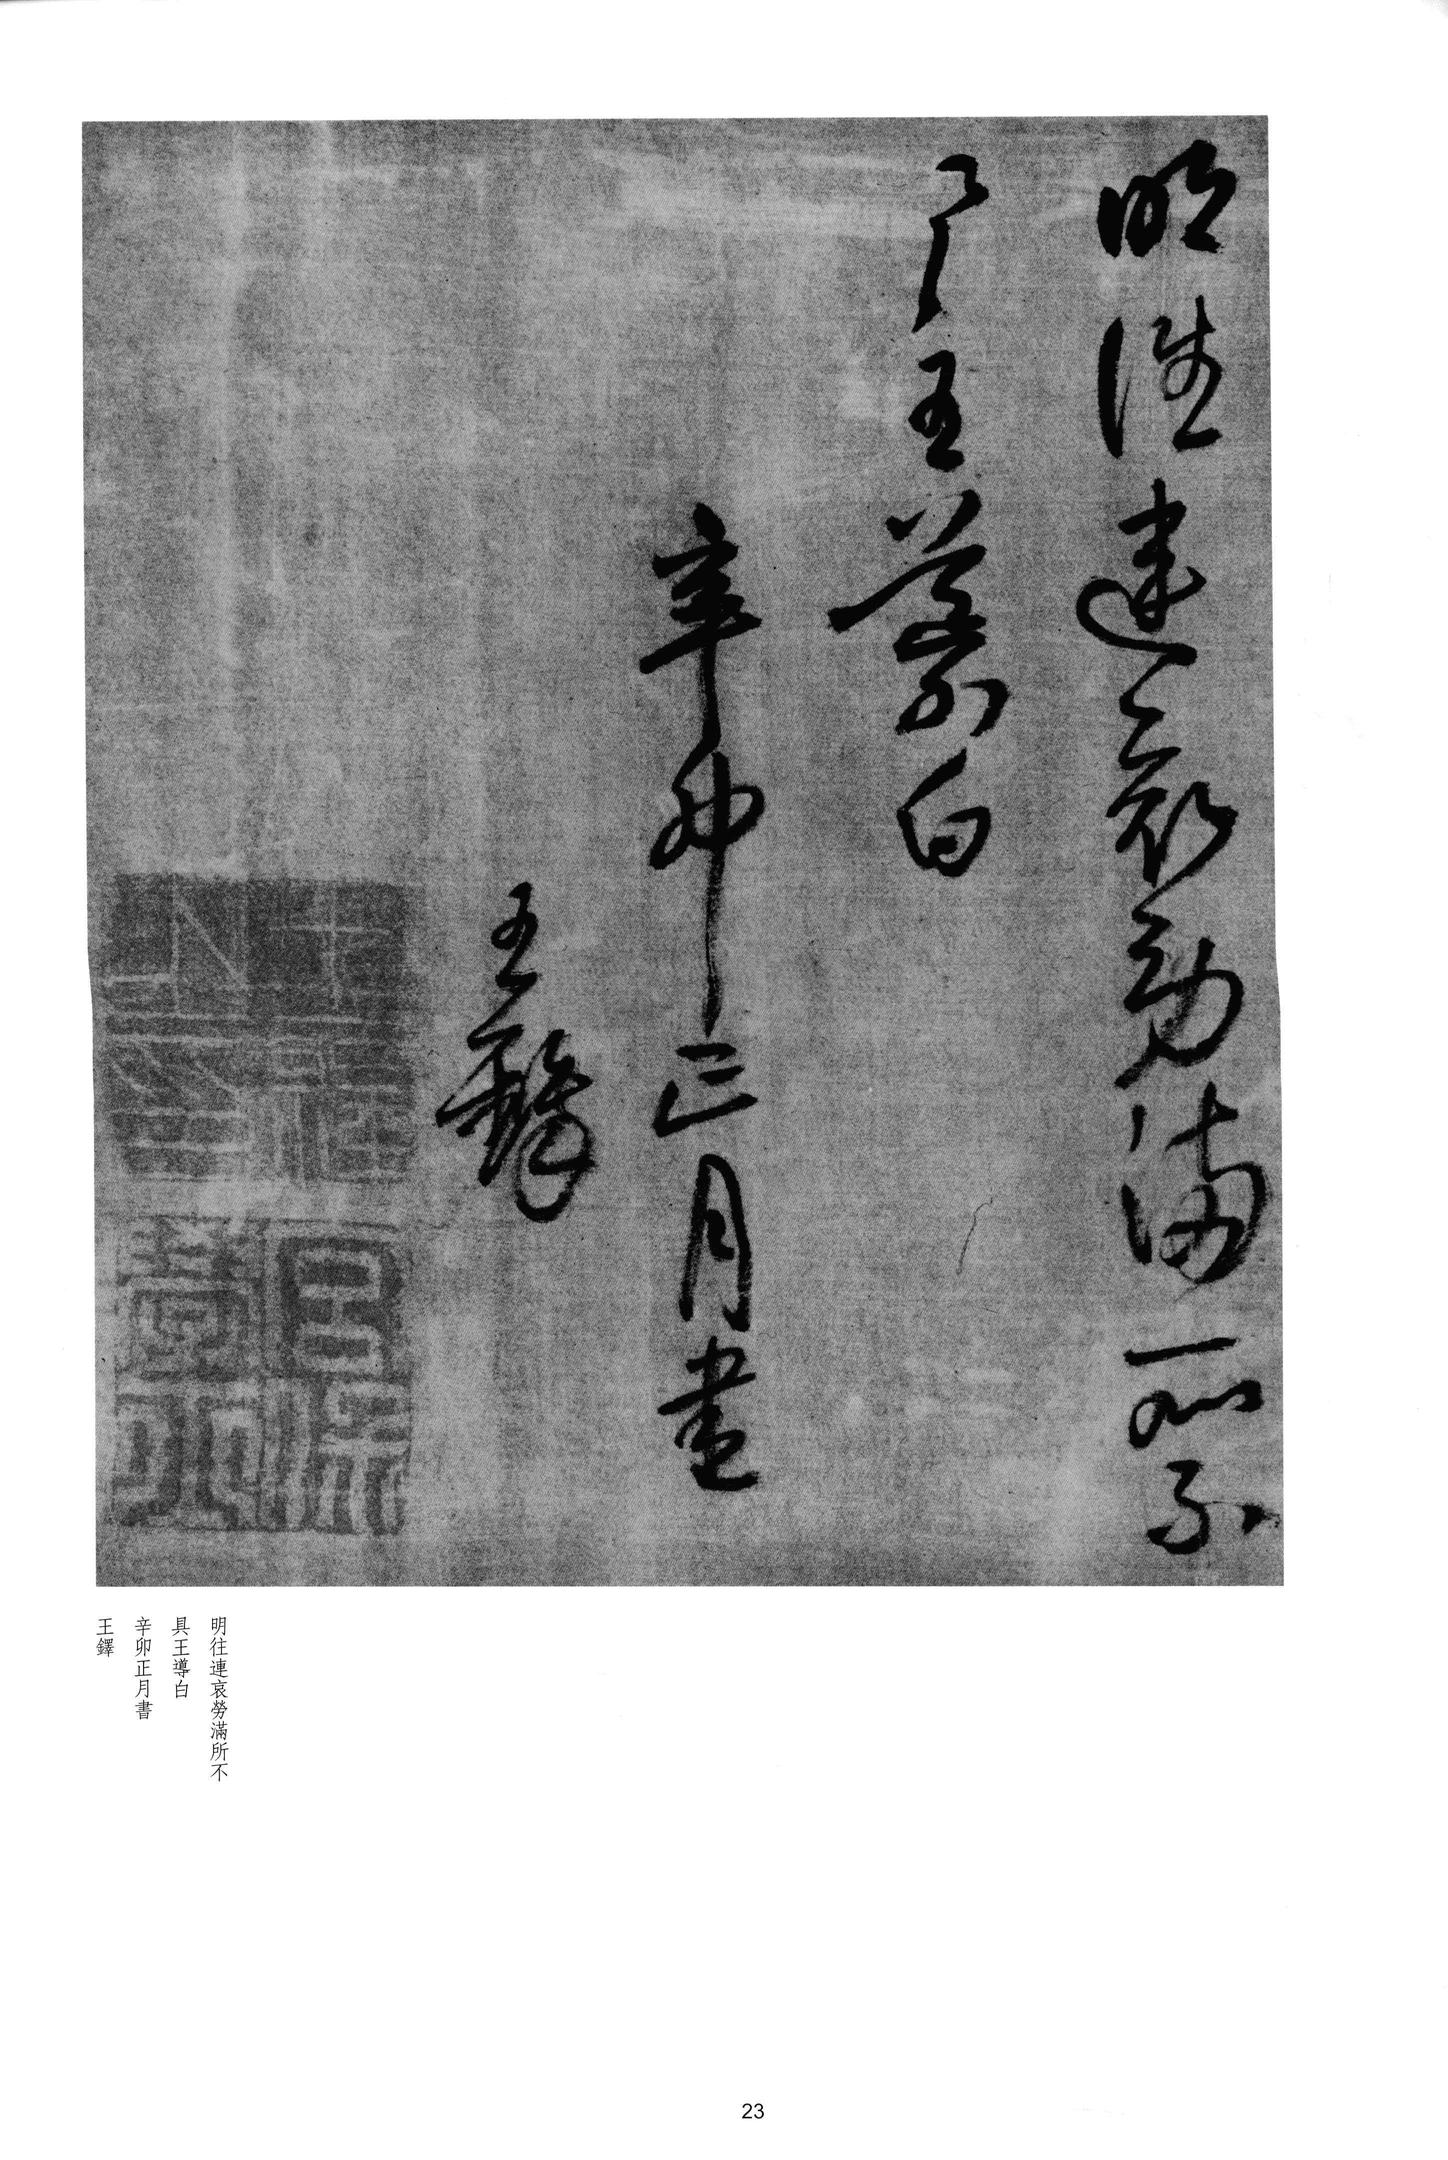 明往連哀勞滿所不
具王導白
辛卯正月書
王鐸
明往連哀勞滿所不
具王導白
辛卯正月書
王鐸
23